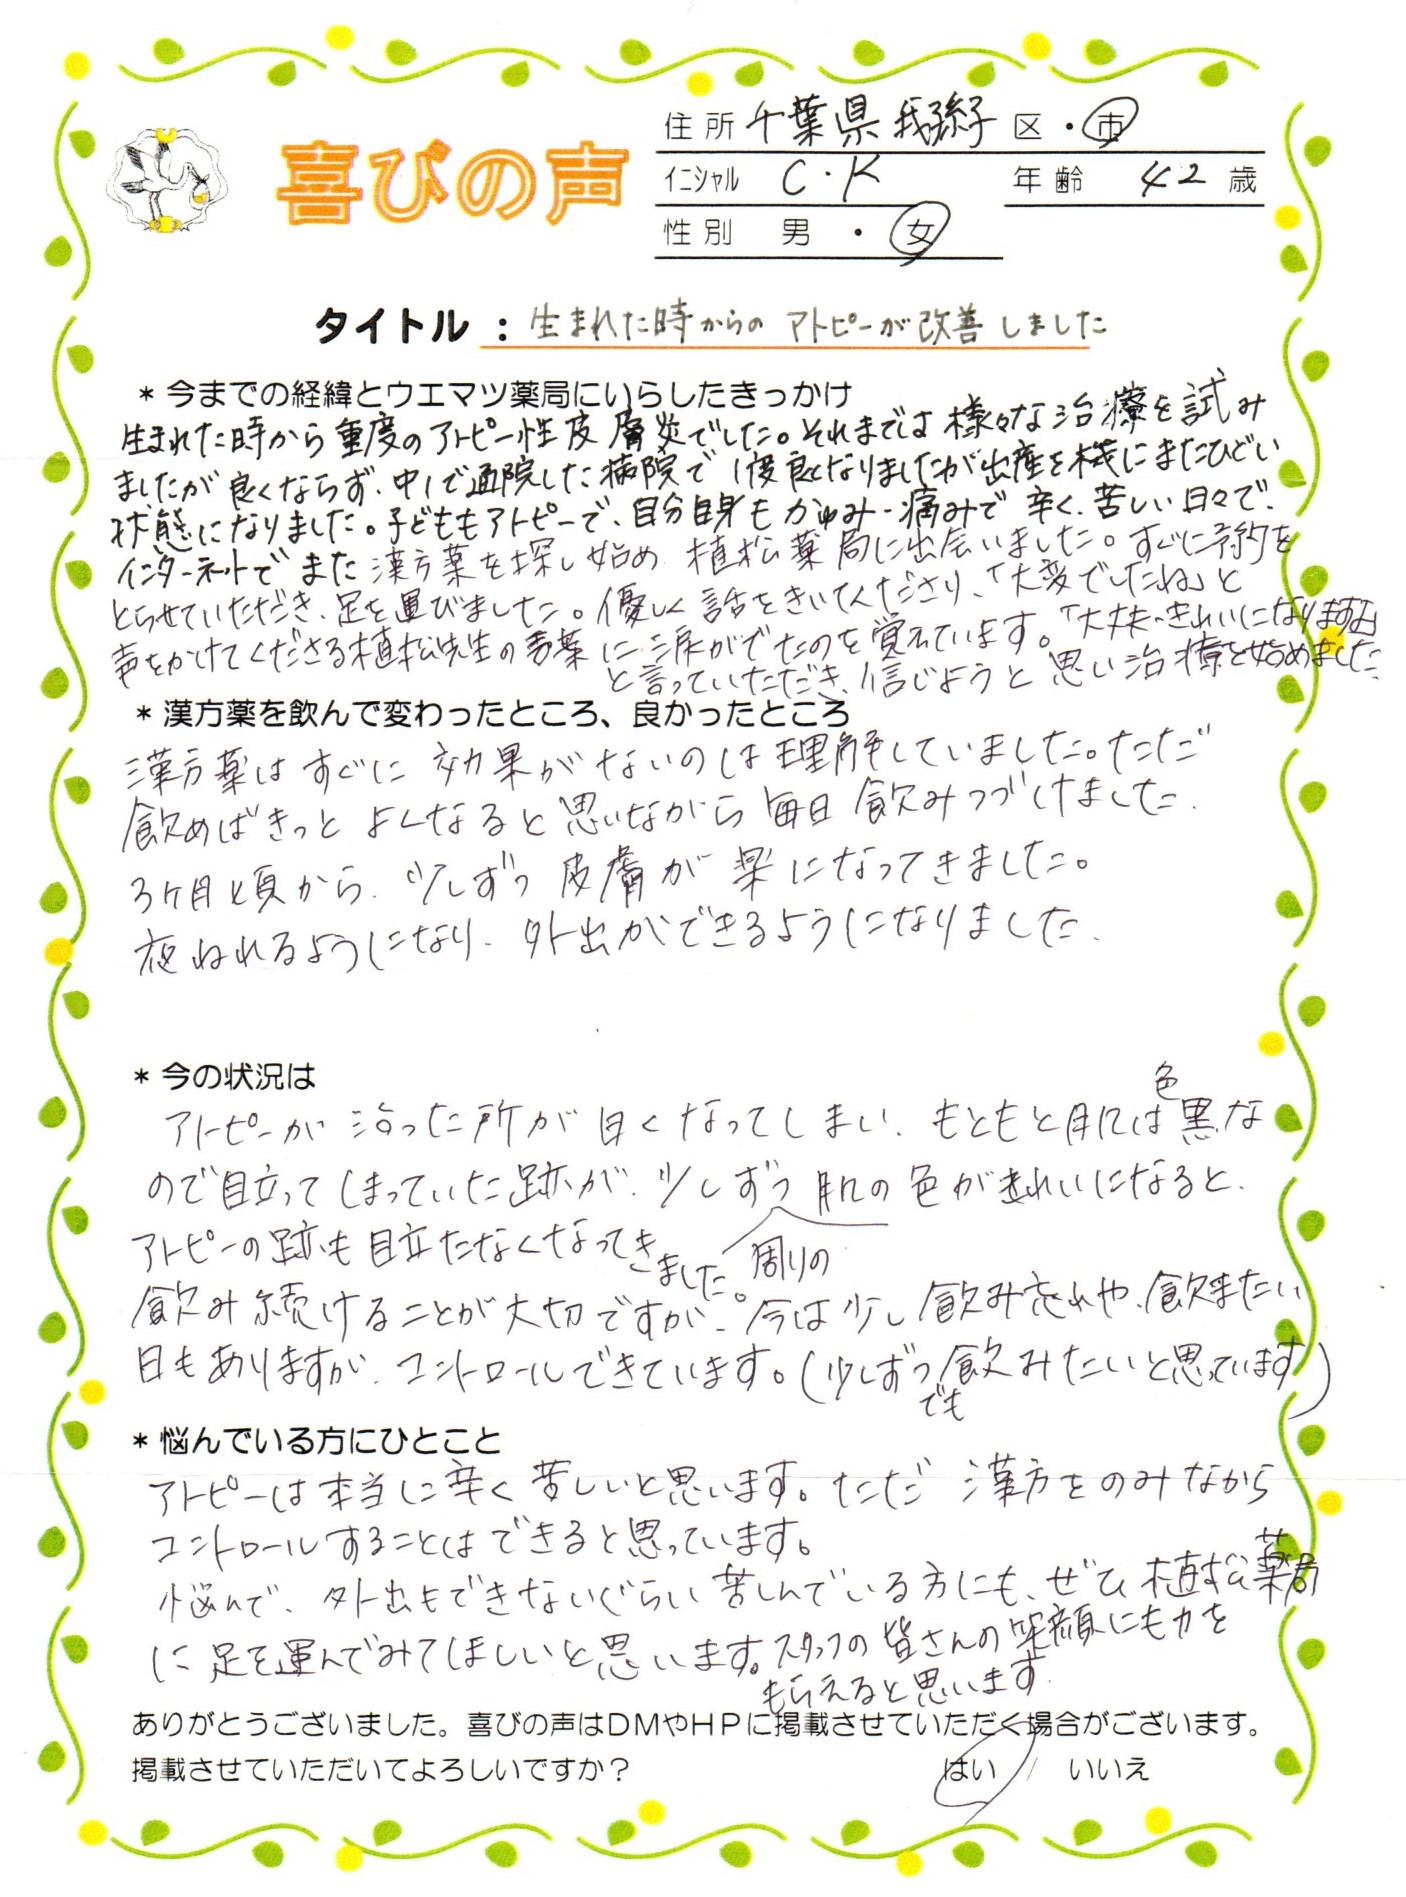 喜びの声
住所 千葉県 我孫子 区・市
イニシャル C・K 年齢 42 歳
性別 男・女
タイトル：生まれた時からの アトピーが改善しました
* 今までの経緯とウエマツ薬局にいらしたきっかけ
生まれた時から重度のアトピー性皮膚炎でした。それまでは様々な治療を試み
ましたが良くならず、中1で通院した病院で1度良くなりましたが出産を機にまたひどい
状態になりました。子どももアトピーで、自分自身もかゆみ・痛みで辛く、苦しい日々で、
インターネットでまた漢方薬を探し始め、植松薬局に出会いました。すぐに予約を
とらせていただき、足を運びました。優しく話をきいてくださり、「大変でしたね」と
声をかけてくださる植松先生の言葉に涙がでたのを覚えています。「大丈夫、きれいになりますよ」
と言っていただき、信じようと思い治療を始めました
* 漢方薬を飲んで変わったところ、良かったところ
漢方薬はすぐに効果がないのは理解していました。ただ
飲めばきっとよくなると思いながら毎日飲みつづけました。
3ヶ月と頃から、少しずつ皮膚が楽になってきました。
夜ねれるようになり、外出ができるようになりました。
* 今の状況は
アトピーが治った所が白くなってしまい、もともと肌は色黒な
ので目立ってしまっていた跡が、少しずつ周りの肌の色がきれいになると、
アトピーの跡も目立たなくなってきました。
飲み続けることが大切ですが、今は少し飲み忘れや、飲またい
日もありますが、コントロールできています。(少しずつでも飲みたいと思っています)
* 悩んでいる方にひとこと
アトピーは本当に辛く苦しいと思います。ただ 漢方をのみながら
コントロールすることはできると思っています。
悩んで、外出もできないぐらい苦しんでいる方にも、ぜひ植松薬局
に足を運んでみてほしいと思います。スタッフの皆さんの笑顔にも力を
もらえると思います
ありがとうございました。喜びの声はDMやHPに掲載させていただく場合がございます。
掲載させていただいてよろしいですか？ はい / いいえ